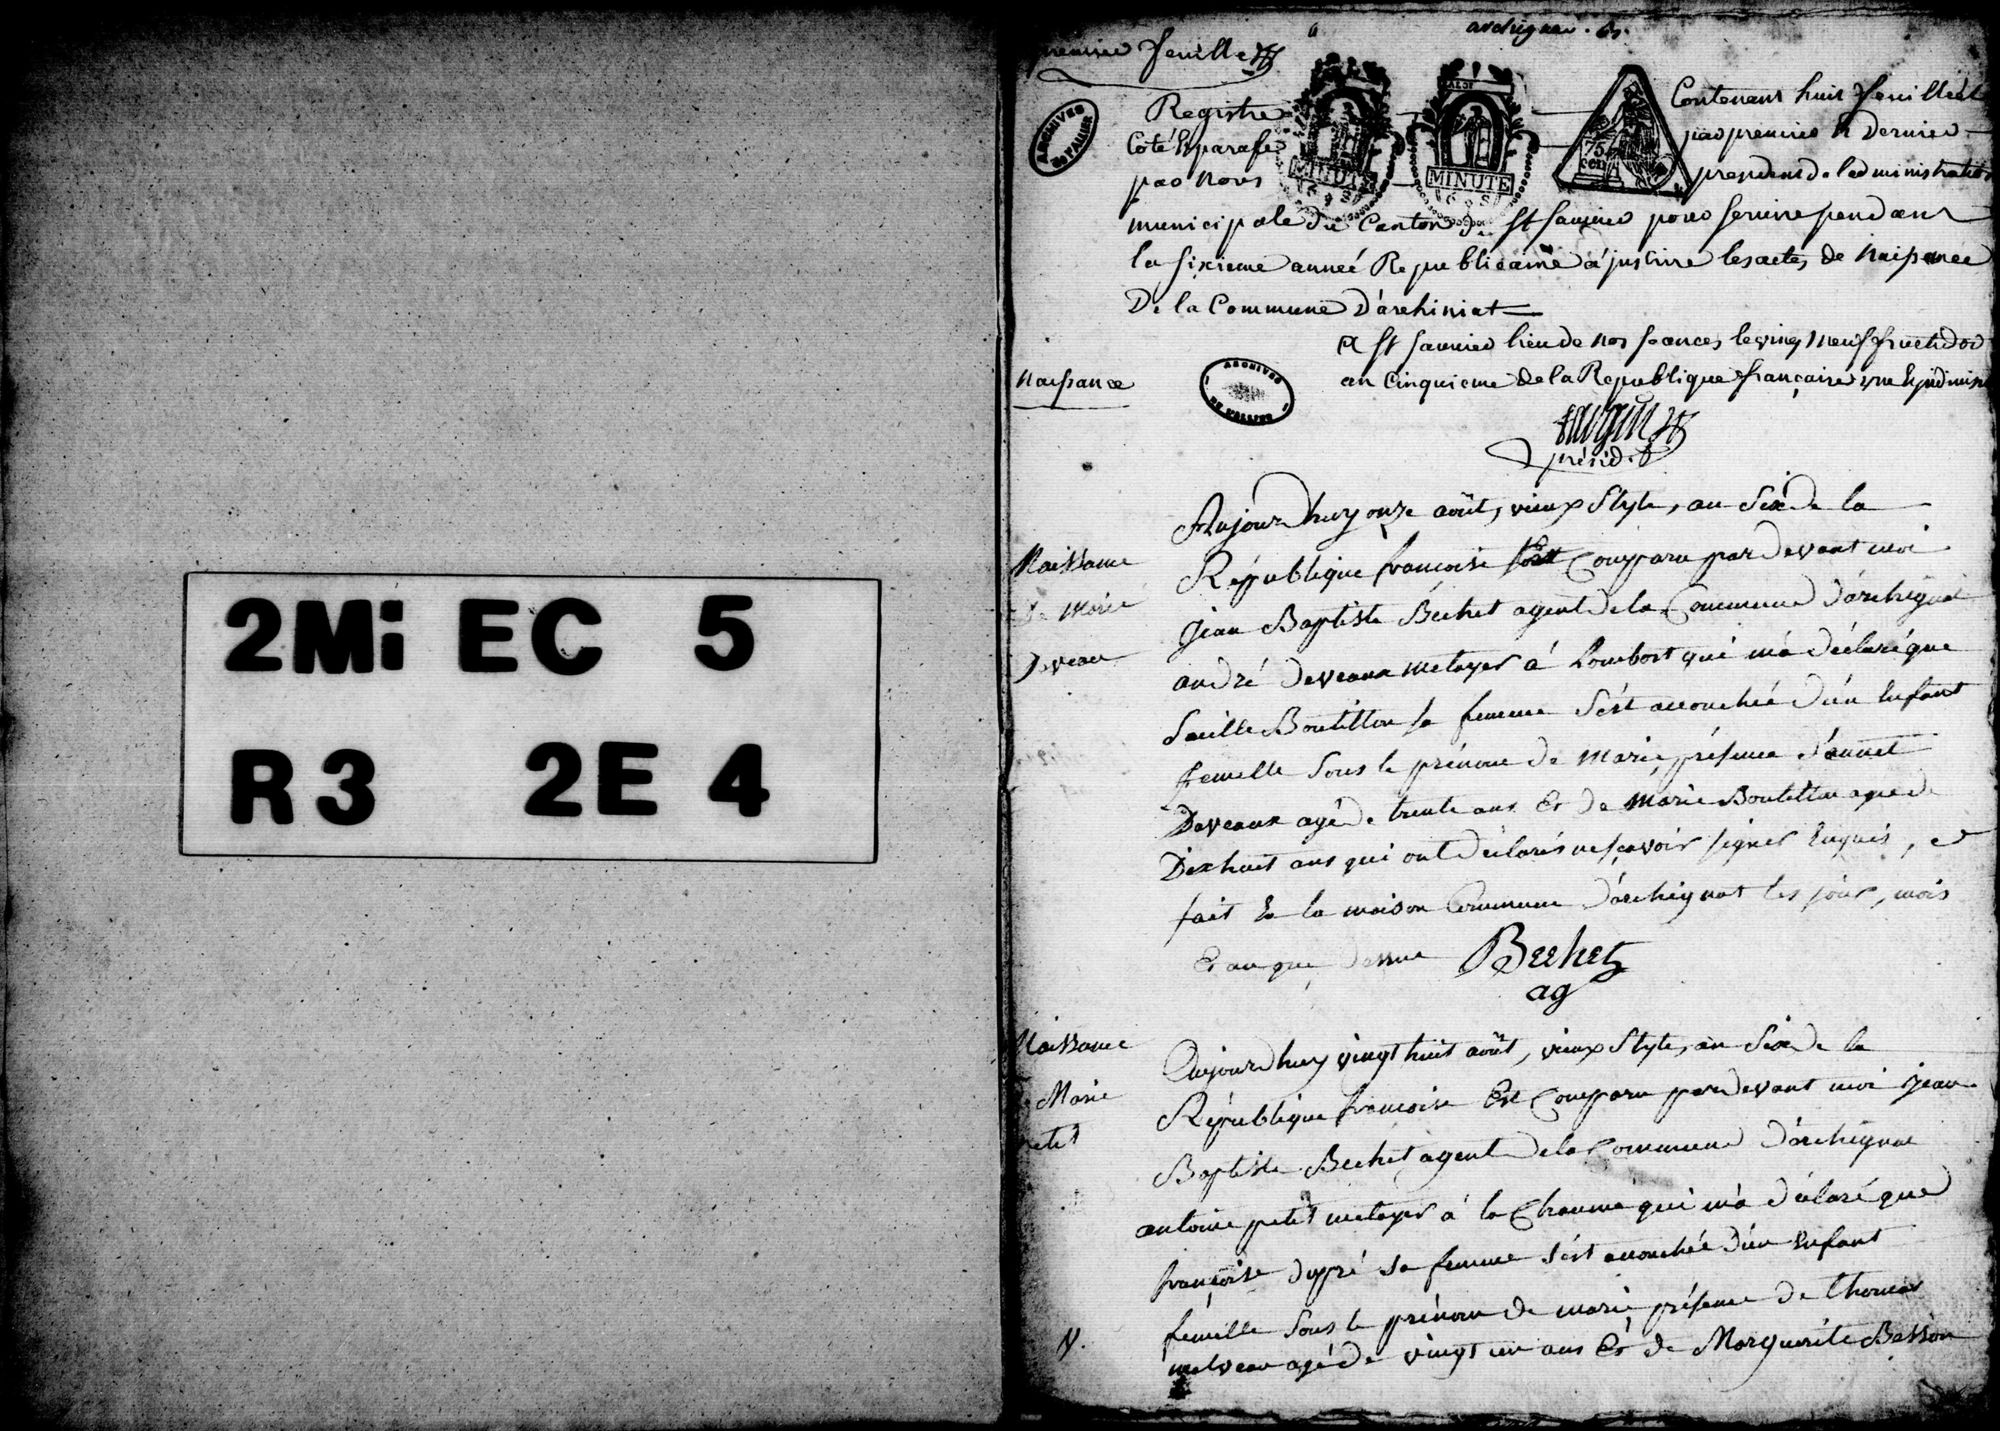 2Mi EC 5
R3 2E4
premiere feuille
archignat
ARCHIVES DE L'ALLIER
MINUTE
MINUTE
75 cen
Registre Contenant huit feuillets
Coté & parafé par premier & Dernier
par Nous president de ladministration
municipale du Canton de St Sauvier pour servire pendant
la sixieme anneé Republicaine à inscrire les actes de Naissance
De la Commune D'archiniat
A St Sauvier lieu de nos seances le vingt neuf fructidor
an Cinquieme de la Republique française une & indivisi
Naissance
ARCHIVES DE L'ALLIER
présid.
Naissance
De Marie
Deveau
Aujourdhuy onze août, vieux Style, an Six de la
République francoise Est Comparu pardevant moi
Jean Baptiste Bechet agent de la Commune D'archignat
andré Deveaux metayer à Lombost qui m'a déclaré que
Boutillon sa femme S'est accouchée D'un Enfant
femelle Sous le prénom de Marie, présence D'annet
Deveaux agé de trente ans Et de Marie Boutillon agée de
Dixhuit ans qui ont déclarés ne sçavoir signer Enquis,
fait En la maison Commune D'archignat les jour, mois
Et an que dessus Bechet
ag
Naissance
Marie
petit
Aujourdhuy vingt huit août, vieux Style, an Six de la
République francoise Est Comparu pardevant moi Jean
Baptiste Bechet agent de la Commune D'archignat
antoine petit metayer à la Chaume qui m'a déclaré que
françoise dupré sa femme S'est accouchée D'un Enfant
femelle Sous le prénom de marie présence de Thomas
malveau agé de vingt un ans Et de Marguerite Besson